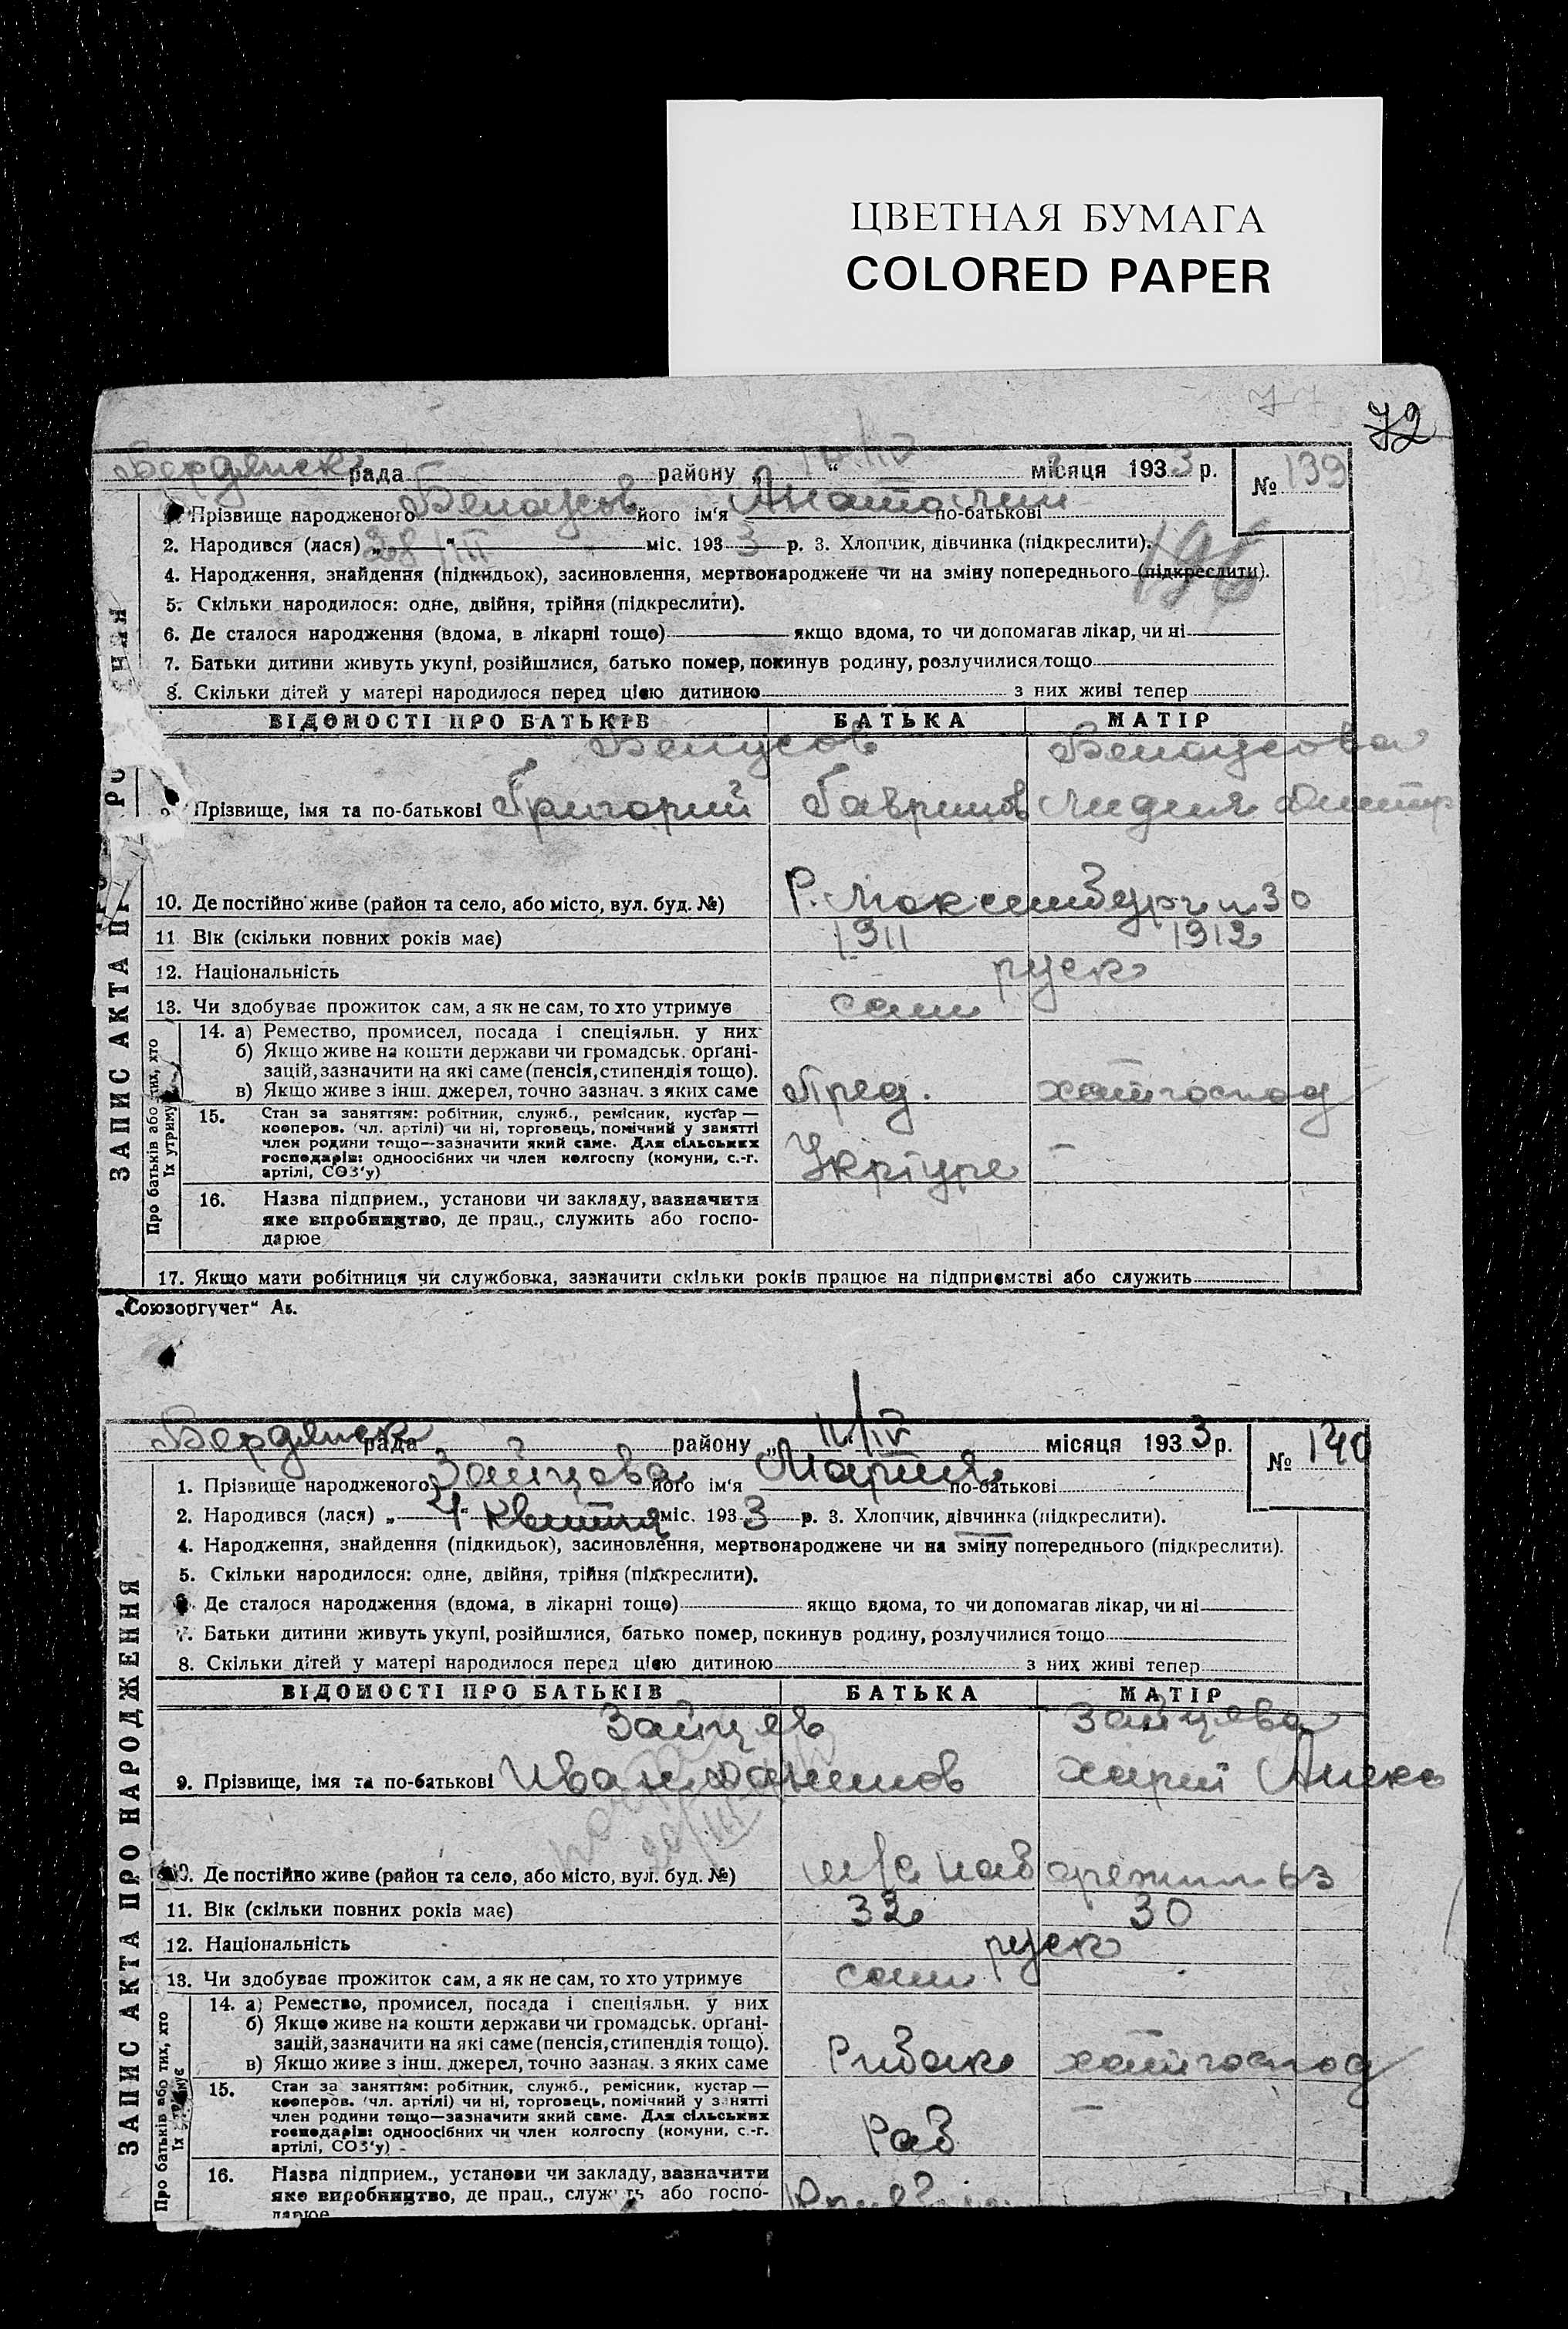 ЦВЕТНАЯ БУМАГА
COLORED PAPER
77
72
Бердянск рада району „ “ /IV місяця 1933 р. № 139
1. Прізвище народженого Белоусов його ім'я Анатолий по-батькові
2. Народився (лася) „28/III“ міс. 1933 р. 3. Хлопчик, дівчинка (підкреслити).
4. Народження, знайдення (підкидьок), засиновлення, мертвонароджене чи на зміну попереднього (підкреслити).
5. Скільки народилося: одне, двійня, трійня (підкреслити).
6. Де сталося народження (вдома, в лікарні тощо) якщо вдома, то чи допомагав лікар, чи ні
7. Батьки дитини живуть укупі, розійшлися, батько помер, покинув родину, розлучилися тощо
8. Скільки дітей у матері народилося перед цією дитиною з них живі тепер
ЗАПИС АКТА
ВІДОМОСТІ ПРО БАТЬКІВ БАТЬКА МАТІР
Белоусова
Прізвище, імя та по-батькові Григорий Гаврилов Лидия Дмитр
10. Де постійно живе (район та село, або місто, вул. буд. №) Р. Люксембург 30
11 Вік (скільки повних років має) 1911 1912
12. Національність руск
13. Чи здобуває прожиток сам, а як не сам, то хто утримує сам
Про батьків або тих, хто їх утримує
14. а) Ремество, промисел, посада і спеціяльн. у них
б) Якщо живе на кошти держави чи громадськ. органі-
зацій, зазначити на які саме (пенсія, стипендія тощо).
в) Якщо живе з інш. джерел, точно зазнач. з яких саме Пред. хатнгоспод
15. Стан за заняттям: робітник, служб., ремісник, кустар —
кооперов. (чл. артілі) чи ні, торговець, помічний у занятті
член родини тощо—зазначити який саме. Для сільських
господарів: одноосібних чи член колгоспу (комуни, с.-г.
артілі, СОЗ'у) —
16. Назва підприєм., установи чи закладу, зазначити
яке виробництво, де прац., служить або госпо-
дарює
17. Якщо мати робітниця чи службовка, зазначити скільки років працює на підприємстві або служить
„Союзоргучет“ Ак.
Бердянск рада району „ 11/IV місяця 1933 р. № 140
1. Прізвище народженого Зайцева його ім'я Мария по-батькові
2. Народився (лася) „4“ квітня міс. 1933 р. 3. Хлопчик, дівчинка (підкреслити).
4. Народження, знайдення (підкидьок), засиновлення, мертвонароджене чи на зміну попереднього (підкреслити).
5. Скільки народилося: одне, двійня, трійня (підкреслити).
6. Де сталося народження (вдома, в лікарні тощо) якщо вдома, то чи допомагав лікар, чи ні
7. Батьки дитини живуть укупі, розійшлися, батько помер, покинув родину, розлучилися тощо
8. Скільки дітей у матері народилося перед цією дитиною з них живі тепер
ЗАПИС АКТА ПРО НАРОДЖЕННЯ
ВІДОМОСТІ ПРО БАТЬКІВ БАТЬКА МАТІР
Зайцев Зайцева
9. Прізвище, імя та по-батькові Иван
10. Де постійно живе (район та село, або місто, вул. буд. №) 63
11. Вік (скільки повних років має) 32 30
12. Національність руск
13. Чи здобуває прожиток сам, а як не сам, то хто утримує сам
Про батьків або тих, хто їх утримує
14. а) Ремество, промисел, посада і спеціяльн. у них
б) Якщо живе на кошти держави чи громадськ. органі-
зацій, зазначити на які саме (пенсія, стипендія тощо).
в) Якщо живе з інш. джерел, точно зазнач. з яких саме Рибак хатнгоспод
15. Стан за заняттям: робітник, служб., ремісник, кустар —
кооперов. (чл. артілі) чи ні, торговець, помічний у занятті
член родини тощо—зазначити який саме. Для сільських
господарів: одноосібних чи член колгоспу (комуни, с.-г.
артілі, СОЗ'у) Раб —
16. Назва підприєм., установи чи закладу, зазначити
яке виробництво, де прац., служить або госпо-
дарює